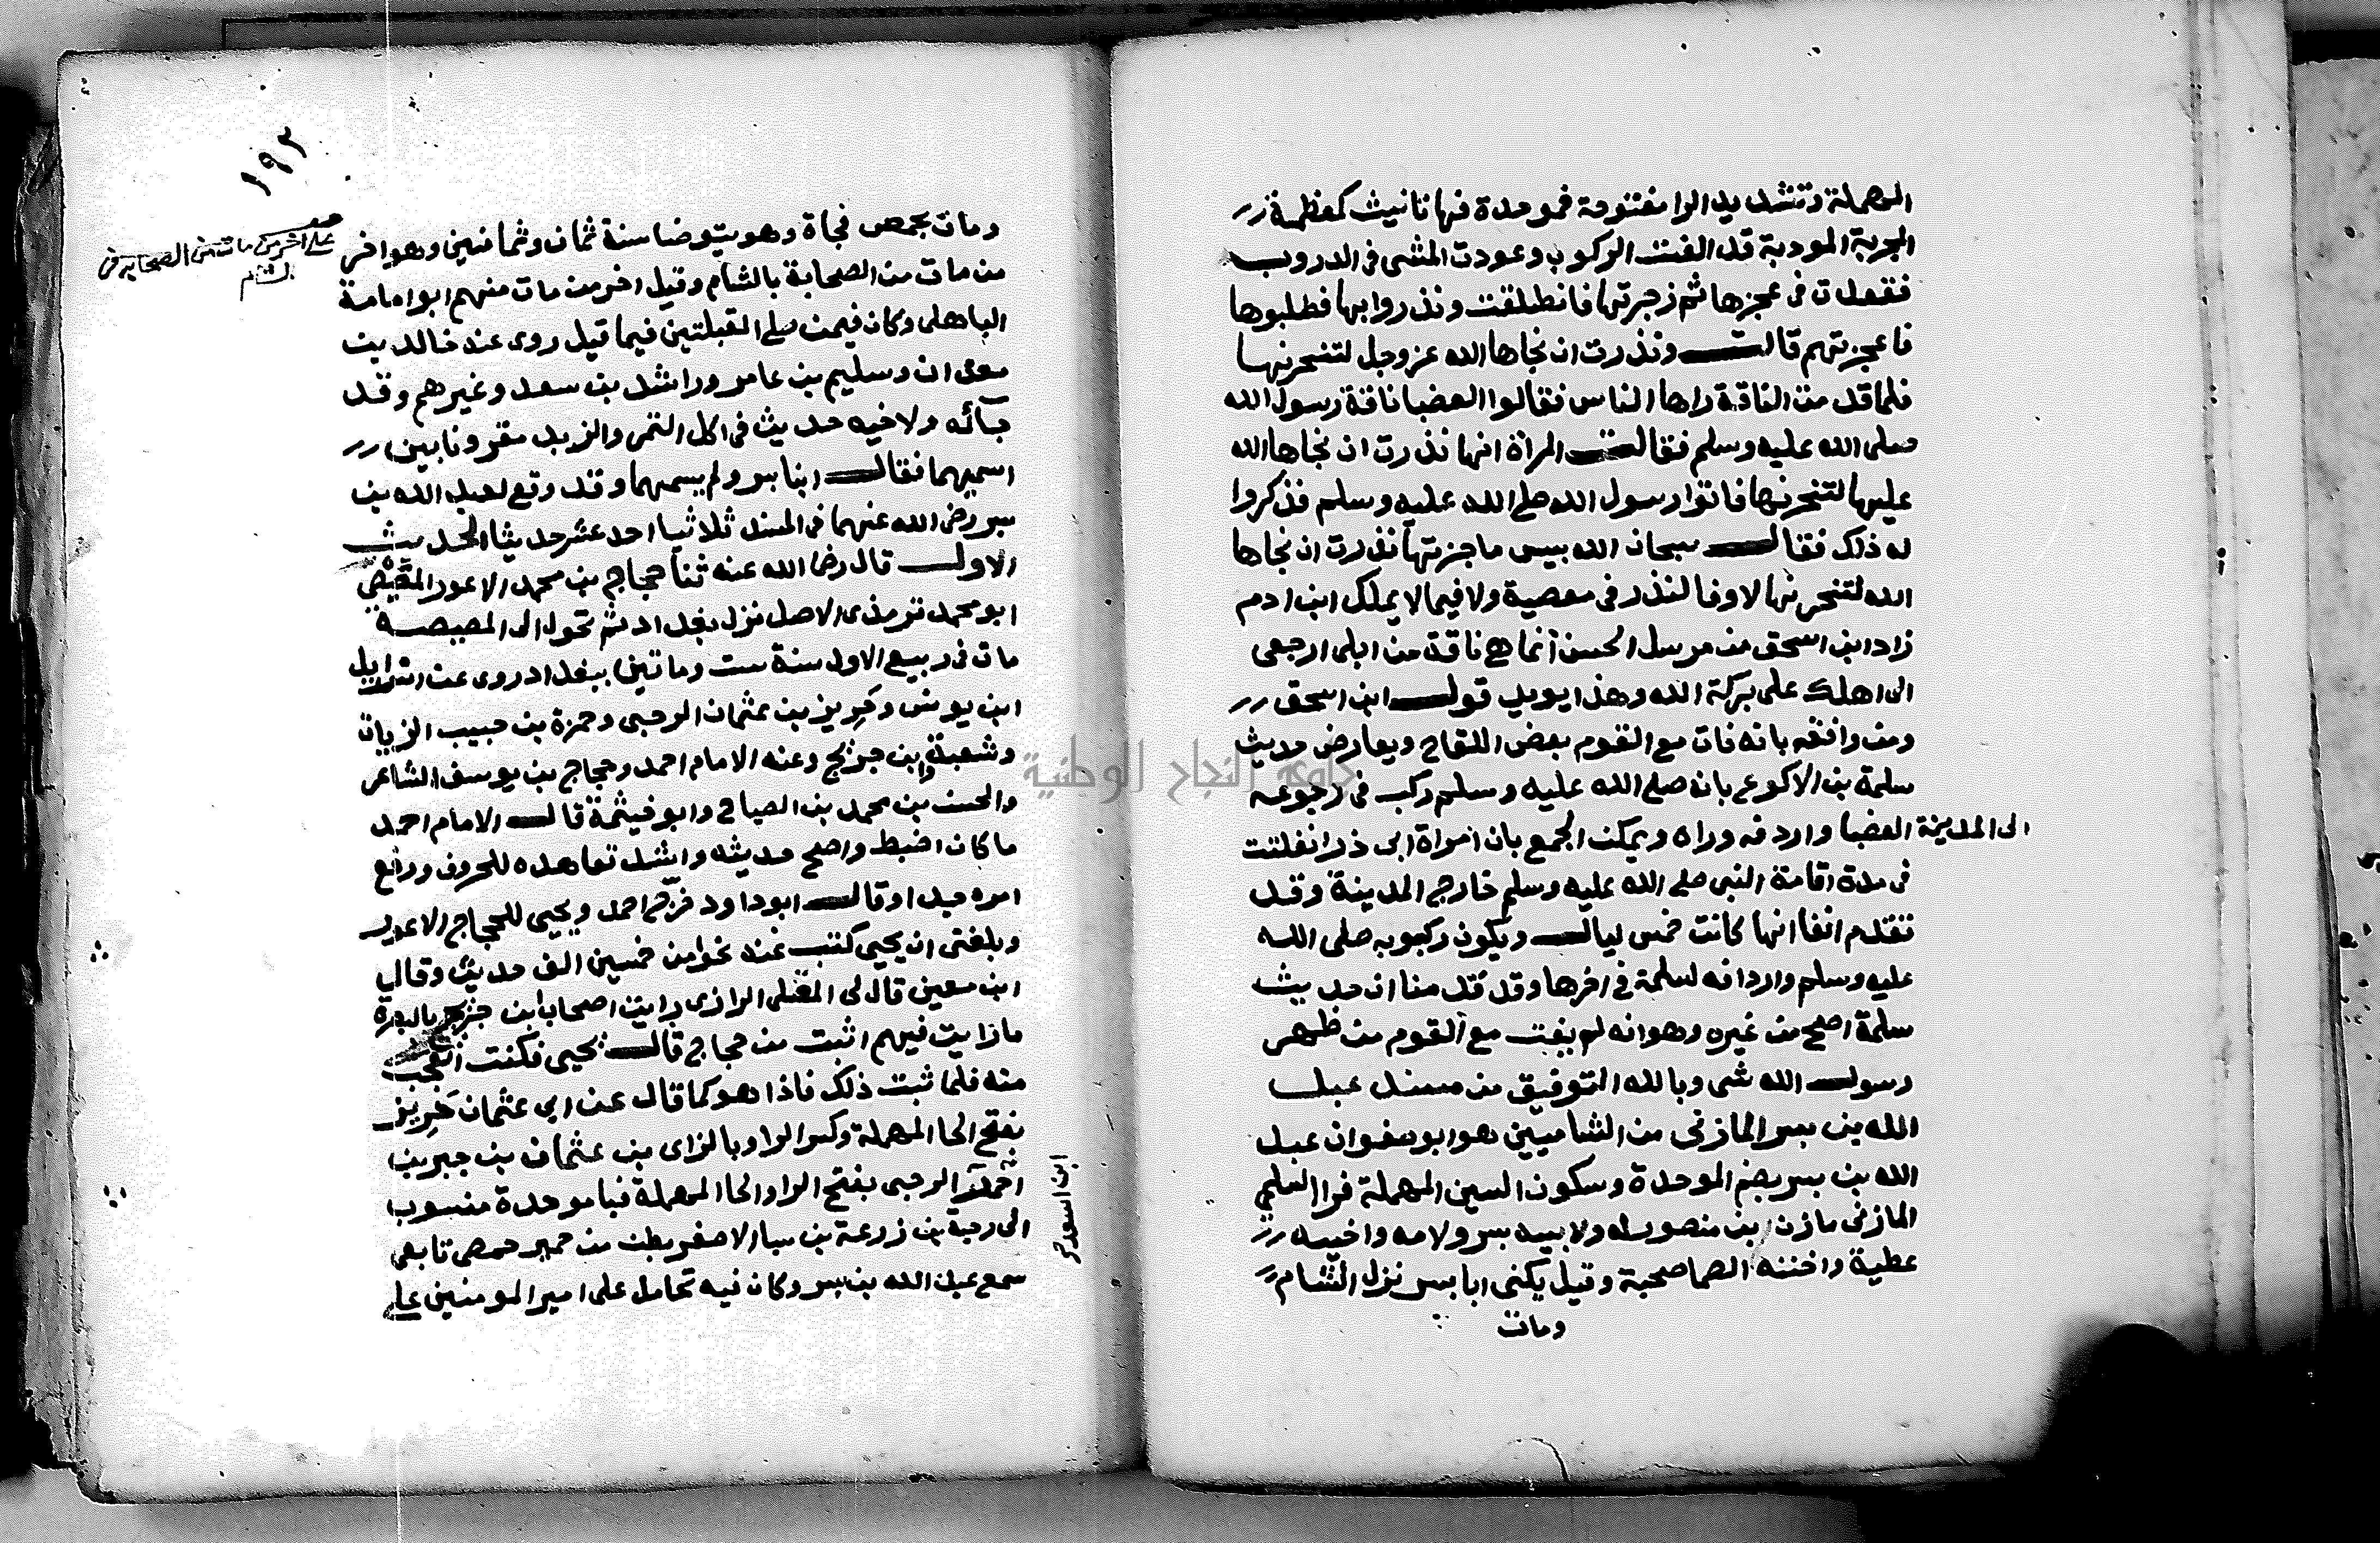 المهملة وتشديد الرا مفتوحة فموحدة فها تانيث كمعظمة
المجربة المودبة قد الفت الركوب وعودت المشى فى الدروب
فقعدت فى عجزها ثم زجرتها فانطلقت ونذروا بها فطلبوها
فاعجزتهم قالت ونذرت ان نجاها الله عز وجل لتنحرنها
فلما قدمت الناقة راها الناس فقالوا العضبا ناقة رسول الله
صلى الله عليه وسلم فقالت المراة انها نذرت ان نجاها الله
عليها لتنحرنها فاتوا رسول الله صلى الله عليه وسلم فذكروا
له ذلك فقال سبحان الله بيس ما جزتها نذرت ان نجاها
الله لتنحرنها لا وفا لنذر فى معصية ولا فيما لا يملك ابن ادم
زاد ابن اسحق من مرسل الحسن انما هي ناقة من ابلى ارجعى
الى اهلك على بركة الله وهذا يويد قول ابن اسحق
ومن وافقه بانه فات مع القوم بعض اللقاح ويعارض حديث
سلمة بن الاكوع بانه صلى الله عليه وسلم ركب فى رجوعه
الى المدينة العضبا واردفه وراه ويمكن الجمع بان امراة ابى ذر انفلتت
فى مدة اقامة النبى صلى الله عليه وسلم خارج المدينة وقد
تقدم انفا انها كانت خمس ليال ويكون ركوبه صلى الله
عليه وسلم واردافه لسلمة فى اخرها وقد قدمنا ان حديث
سلمة اصح من غيره وهو انه لم يفت مع القوم من ظهر
رسول الله شى وبالله التوفيق من مسند عبد
الله بن بسر المازنى من الشاميين هو ابو صفوان عبد
الله بن بسر بضم الموحدة وسكون السين المهملة فرا السلمي
المازنى مازن بن منصور له ولابيه بسر ولامه واخيه
عطية واخته الصما صحبة وقيل يكنى ابا بسر نزل الشام
ومات
١٩٢
ومات بحمص فجاة وهو يتوضا سنة ثمان وثمانين وهو اخر
على اخر من مات من الصحابة فى
الشام
من مات من الصحابة بالشام وقيل اخر من مات منهم ابو امامة
الباهلى وكان فيمن صلى القبلتين فيما قيل روى عنه خالد بن
معدان وسليم بن عامر وراشد بن سعد وغيرهم وقد
جآئه ولاخيه حديث فى اكل التمر والزبد مقرونا بين
اسميهما فقال ابنا بسر ولم يسمهما وقد وقع لعبد الله بن
بسر رضى الله عنهما فى المسند ثلاثيا احد عشر حديثا الحديث
الاول قال رضى الله عنه ثنا حجاج بن محمد الاعور المصيصي
ابو محمد ترمذى الاصل نزل بغداد ثم تحول الى المصيصة
مات فى ربيع الاول سنة ست وماتين ببغداد روى عن اسرايل
ابن يونس وحريز بن عثمان الرحبى وحمزة بن حبيب الزيات
وشعبة وابن جريج وعنه الامام احمد وحجاج بن يوسف الشاعر
والحسن بن محمد بن الصباح وابو خيثمة قال الامام احمد
ما كان اضبط واصح حديثه واشد تعاهده للحروف ورفع
امره جدا وقال ابو داود خرج احمد ويحيى للحجاج الاعور
وبلغنى ان يحيى كتب عنه نحوا من خمسين الف حديث وقال
ابن معين قال لى المعلى الرازى رايت اصحاب ابن جريج بالبصرة
ما رايت فيهم اثبت من حجاج قال يحيى فكنت اتعجب
منه فلما ثبت ذلك فاذا هو كما قال عن ابى عثمان حريز
بفتح الحا المهملة وكسر الرا وبالزاى بن عثمان بن جبر بن
احمد الرحبى بفتح الرا والحا المهملة فبا موحدة منسوب
ابن اسعد
الى رحبة بن زرعة بن سبا الاصغر بطن من حمير حمصى تابعى
سمع عبد الله بن بسر وكان فيه تحامل على امير المومنين على
جامعة النجاح الوطنية